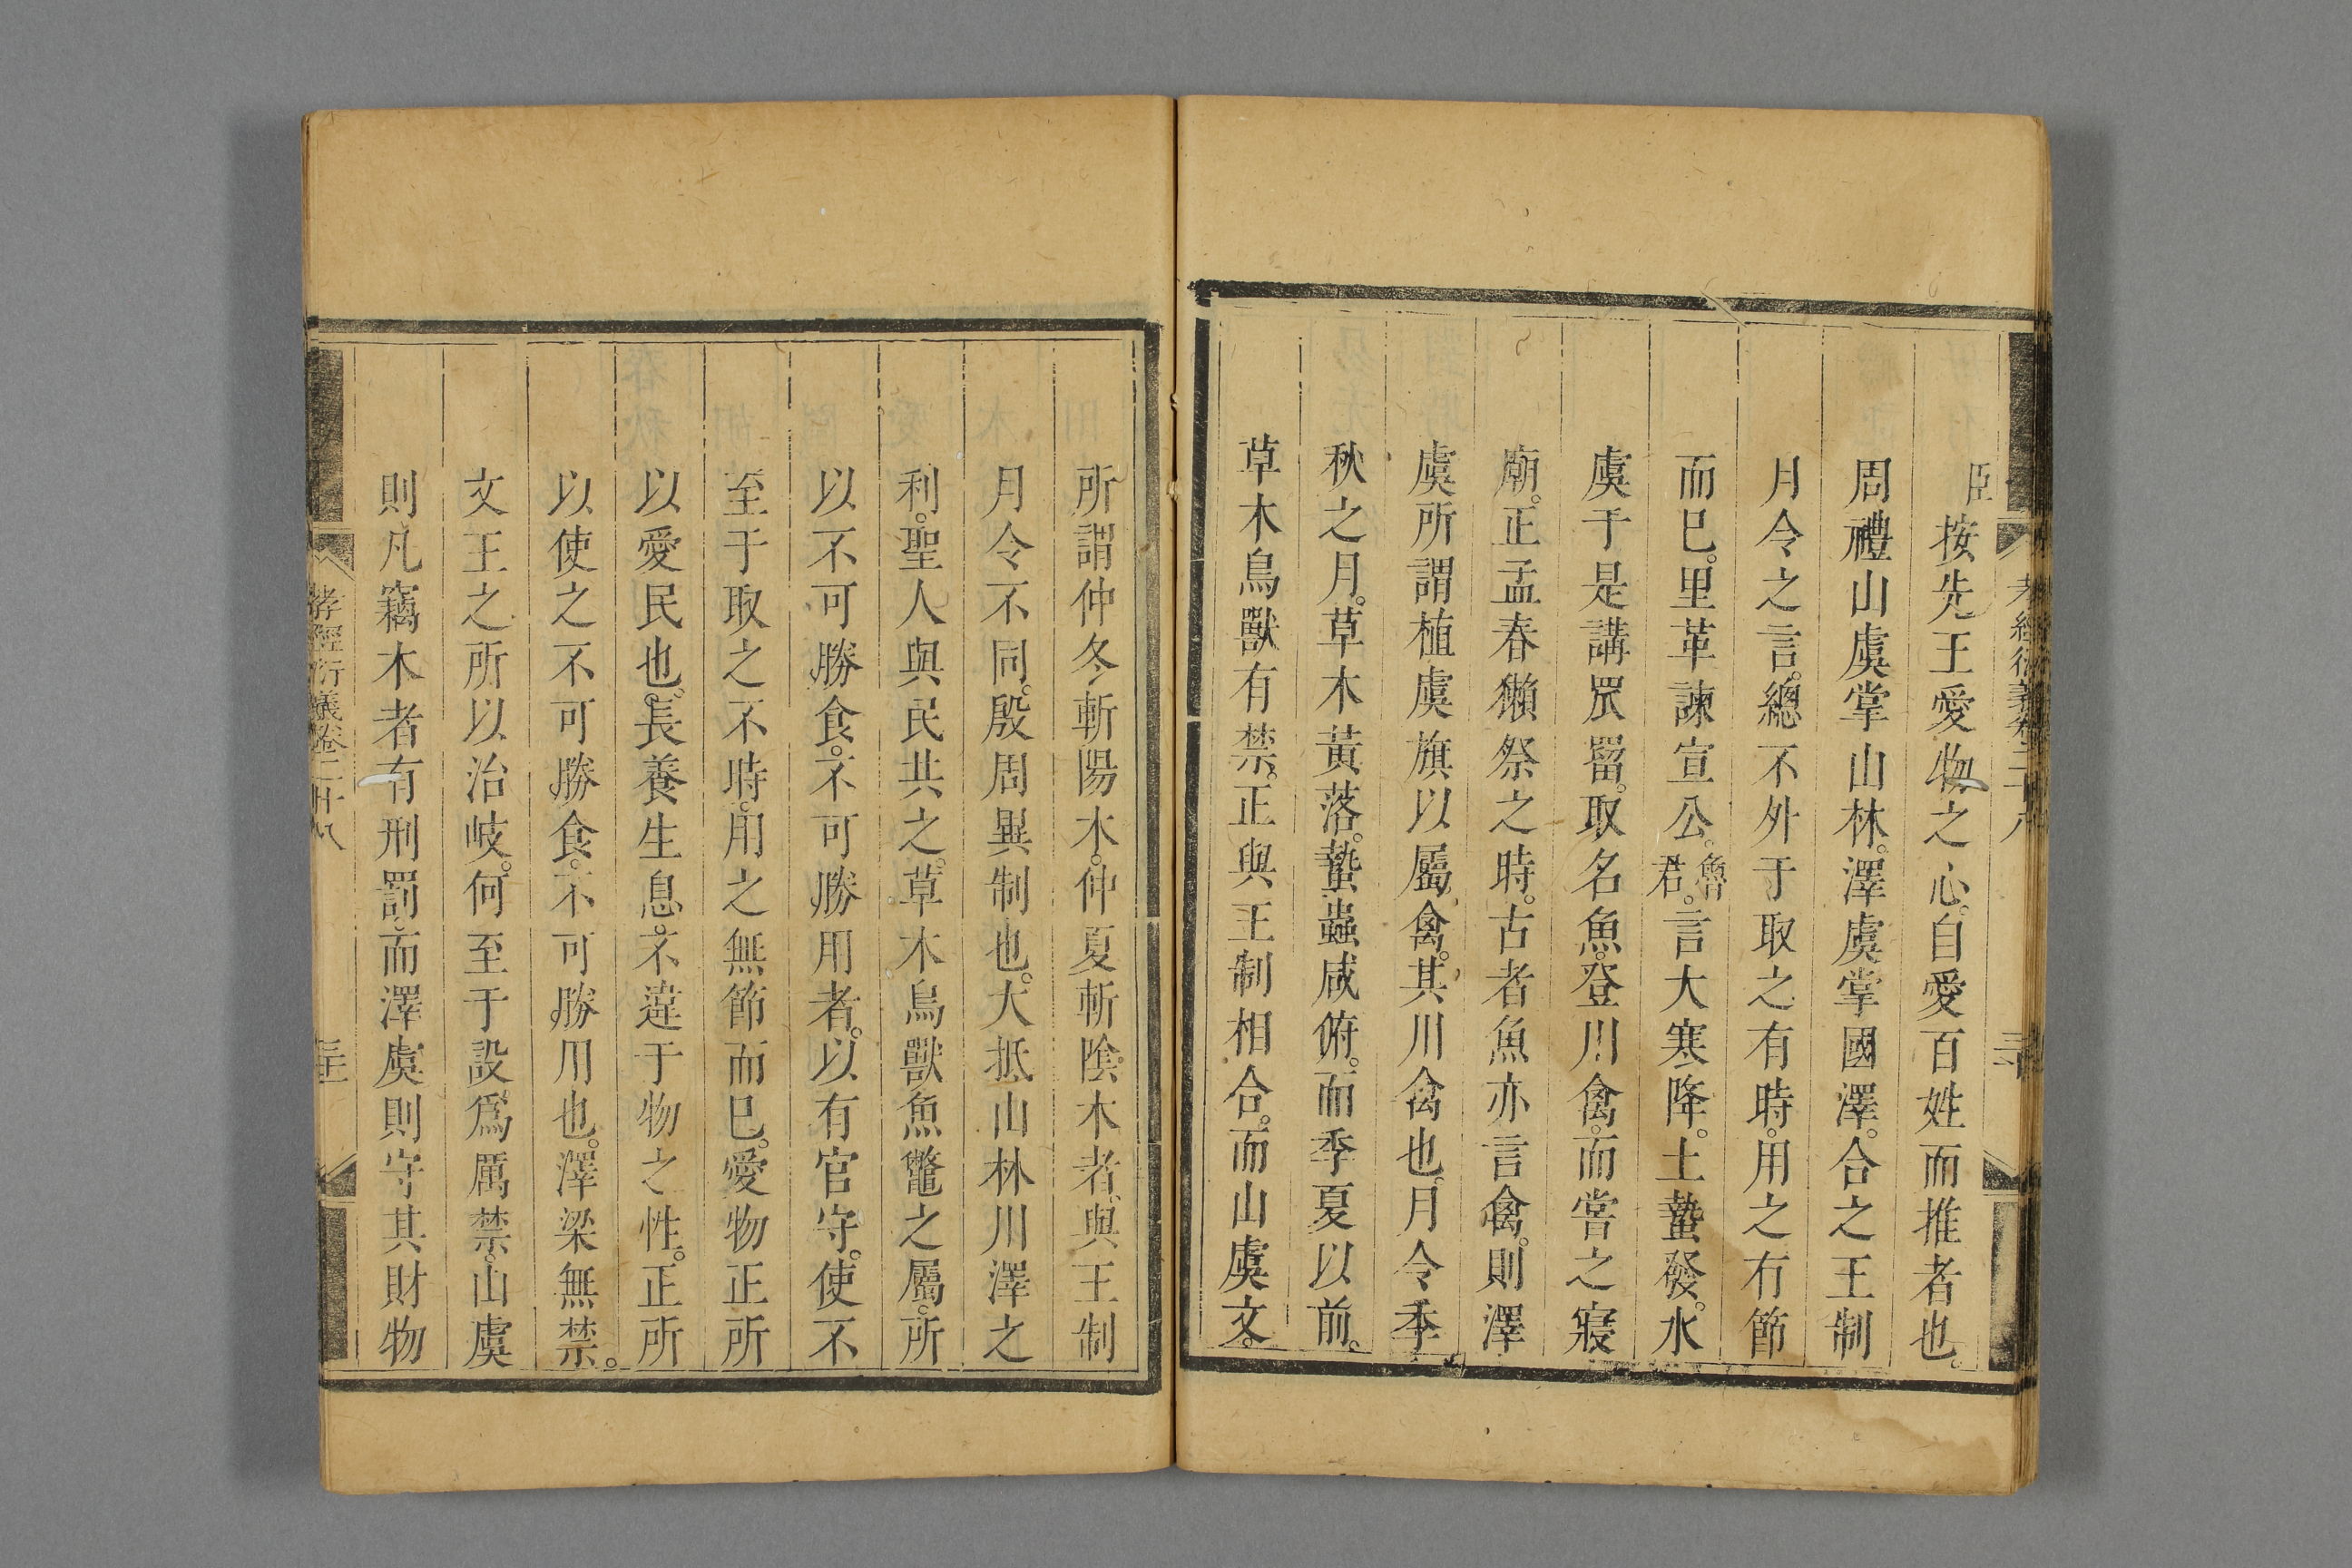 孝經衍義卷二十八
三十
臣按先王愛物之心。自愛百姓而推者也。
周禮山虞掌山林。澤虞掌國澤。合之王制
月令之言。總不外于取之有時。用之有節
而已。里革諫宣公。魯君。言大寒降。土蟄發。水
虞于是講罛罶。取名魚。登川禽。而嘗之寢
廟。正孟春獺祭之時。古者魚亦言禽。則澤
虞所謂植虞旗以屬禽。其川禽也。月令季
秋之月。草木黃落。蟄蟲咸俯。而季夏以前。
草木鳥獸有禁。正與王制相合。而山虞文。
所謂仲冬斬陽木。仲夏斬陰木者、與王制
月令不同。殷周異制也。大抵山林川澤之
利。聖人與民共之。草木鳥獸魚鼈之屬。所
以不可勝食。不可勝用者。以有官守。使不
至于取之不時。用之無節而已。愛物正所
以愛民也。長養生息。不違于物之性。正所
以使之不可勝食。不可勝用也。澤梁無禁。
文王之所以治岐。何至于設爲厲禁。山虞
則凡竊木者有刑罰。而澤虞則守其財物
孝經衍義卷二十八